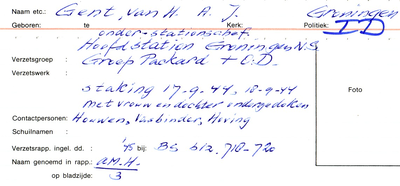 Naam etc.: Gent, van H. A. J. Groningen
Geboren: te Kerk: Politiek: I D
onder-stationschef
Hoofdstation Groningen N.S.
Verzetsgroep Groep Packard + O.D.
Verzetswerk :
staking 17-9-44, 18-9-44
met vrouw en dochter ondergedoken
Foto
Contactpersonen: Houwen, Vasbinder, Hoving
Schuilnaam :
Verzetsrapp. ingel. dd. : '45 bij: BS blz. 710-720
Naam genoemd in rapp.: A.M.H.
op bladzijde: 3